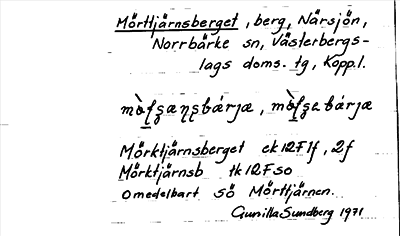 Mörttjärnsberget, berg, Närsjön,
Norrbärke sn, Västerbergs-
lags doms. tg, Kopp.l.
Mörktjärnsberget ek12F1f, 2f
Mörktjärnsb tk12Fso
omedelbart sö Mörttjärnen.
Gunilla Sundberg 1971